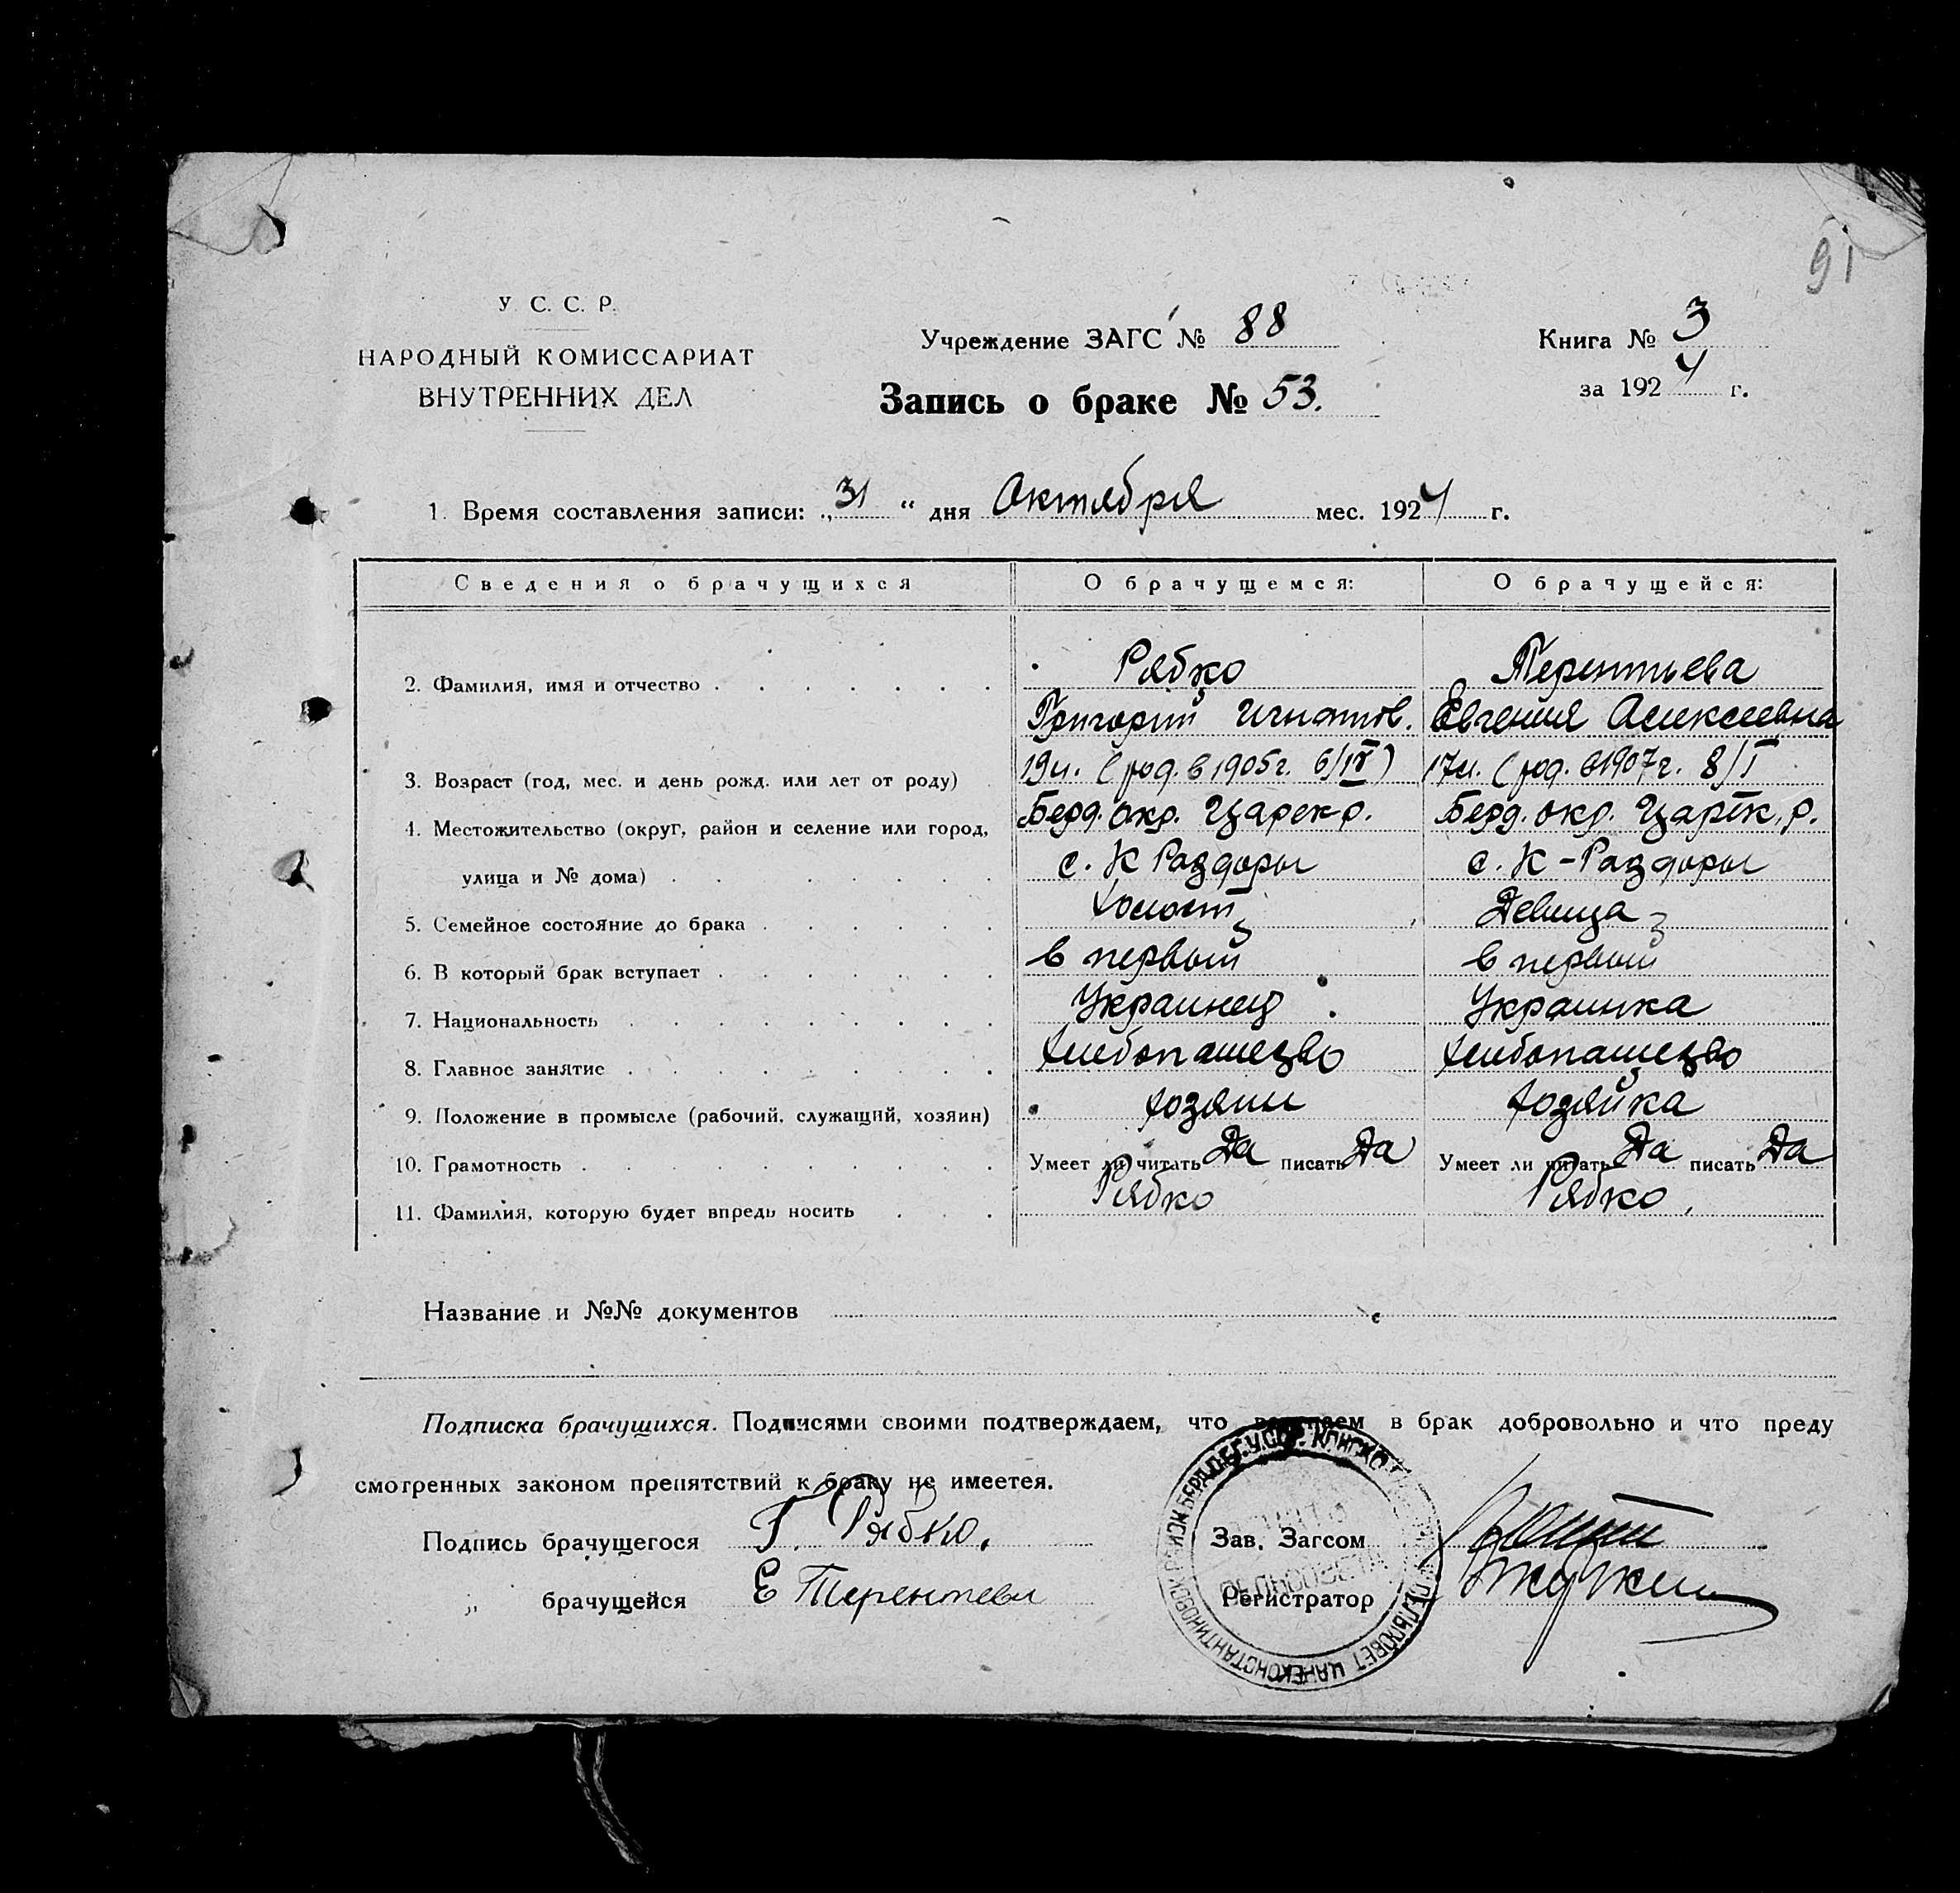 91
У. С. С. Р.
НАРОДНЫЙ КОМИССАРИАТ
ВНУТРЕННИХ ДЕЛ
Учреждение ЗАГС № 88
Запись о браке № 53.
Книга № 3
за 1924 г.
1. Время составления записи: „31“ дня Октября мес. 1924 г.
Сведения о брачущихся О брачущемся: О брачущейся:
2. Фамилия, имя и отчество Рябко Терентьева
Григорий Игнатов. Евгения Алексеевна
3. Возраст (год, мес. и день рожд. или лет от роду) 19л. (род. в 1905г. 6/IX) 17л. (род. в 1907г. 8/I
4. Местожительство (округ, район и селение или город, Берд. окр. Царек р. Берд. окр. Царек. р.
улица и № дома) с. К Раздоры с. К-Раздоры
5. Семейное состояние до брака Холост Девица
6. В который брак вступает в первый в первый
7. Национальность Украинец Украинка
8. Главное занятие хлебопашество хлебопашество
9. Положение в промысле (рабочий, служащий, хозяин) хозяин хозяйка
10. Грамотность Умеет ли читать Да писать Да Умеет ли читать Да писать Да
11. Фамилия, которую будет впредь носить Рябко Рябко
Название и №№ документов
Подписка брачущихся. Подписями своими подтверждаем, что вступаем в брак добровольно и что преду
смотренных законом препятствий к браку не имеется.
Подпись брачущегося Г. Рябко.
„ брачущейся Е Терентева
Зав. Загсом
Регистратор